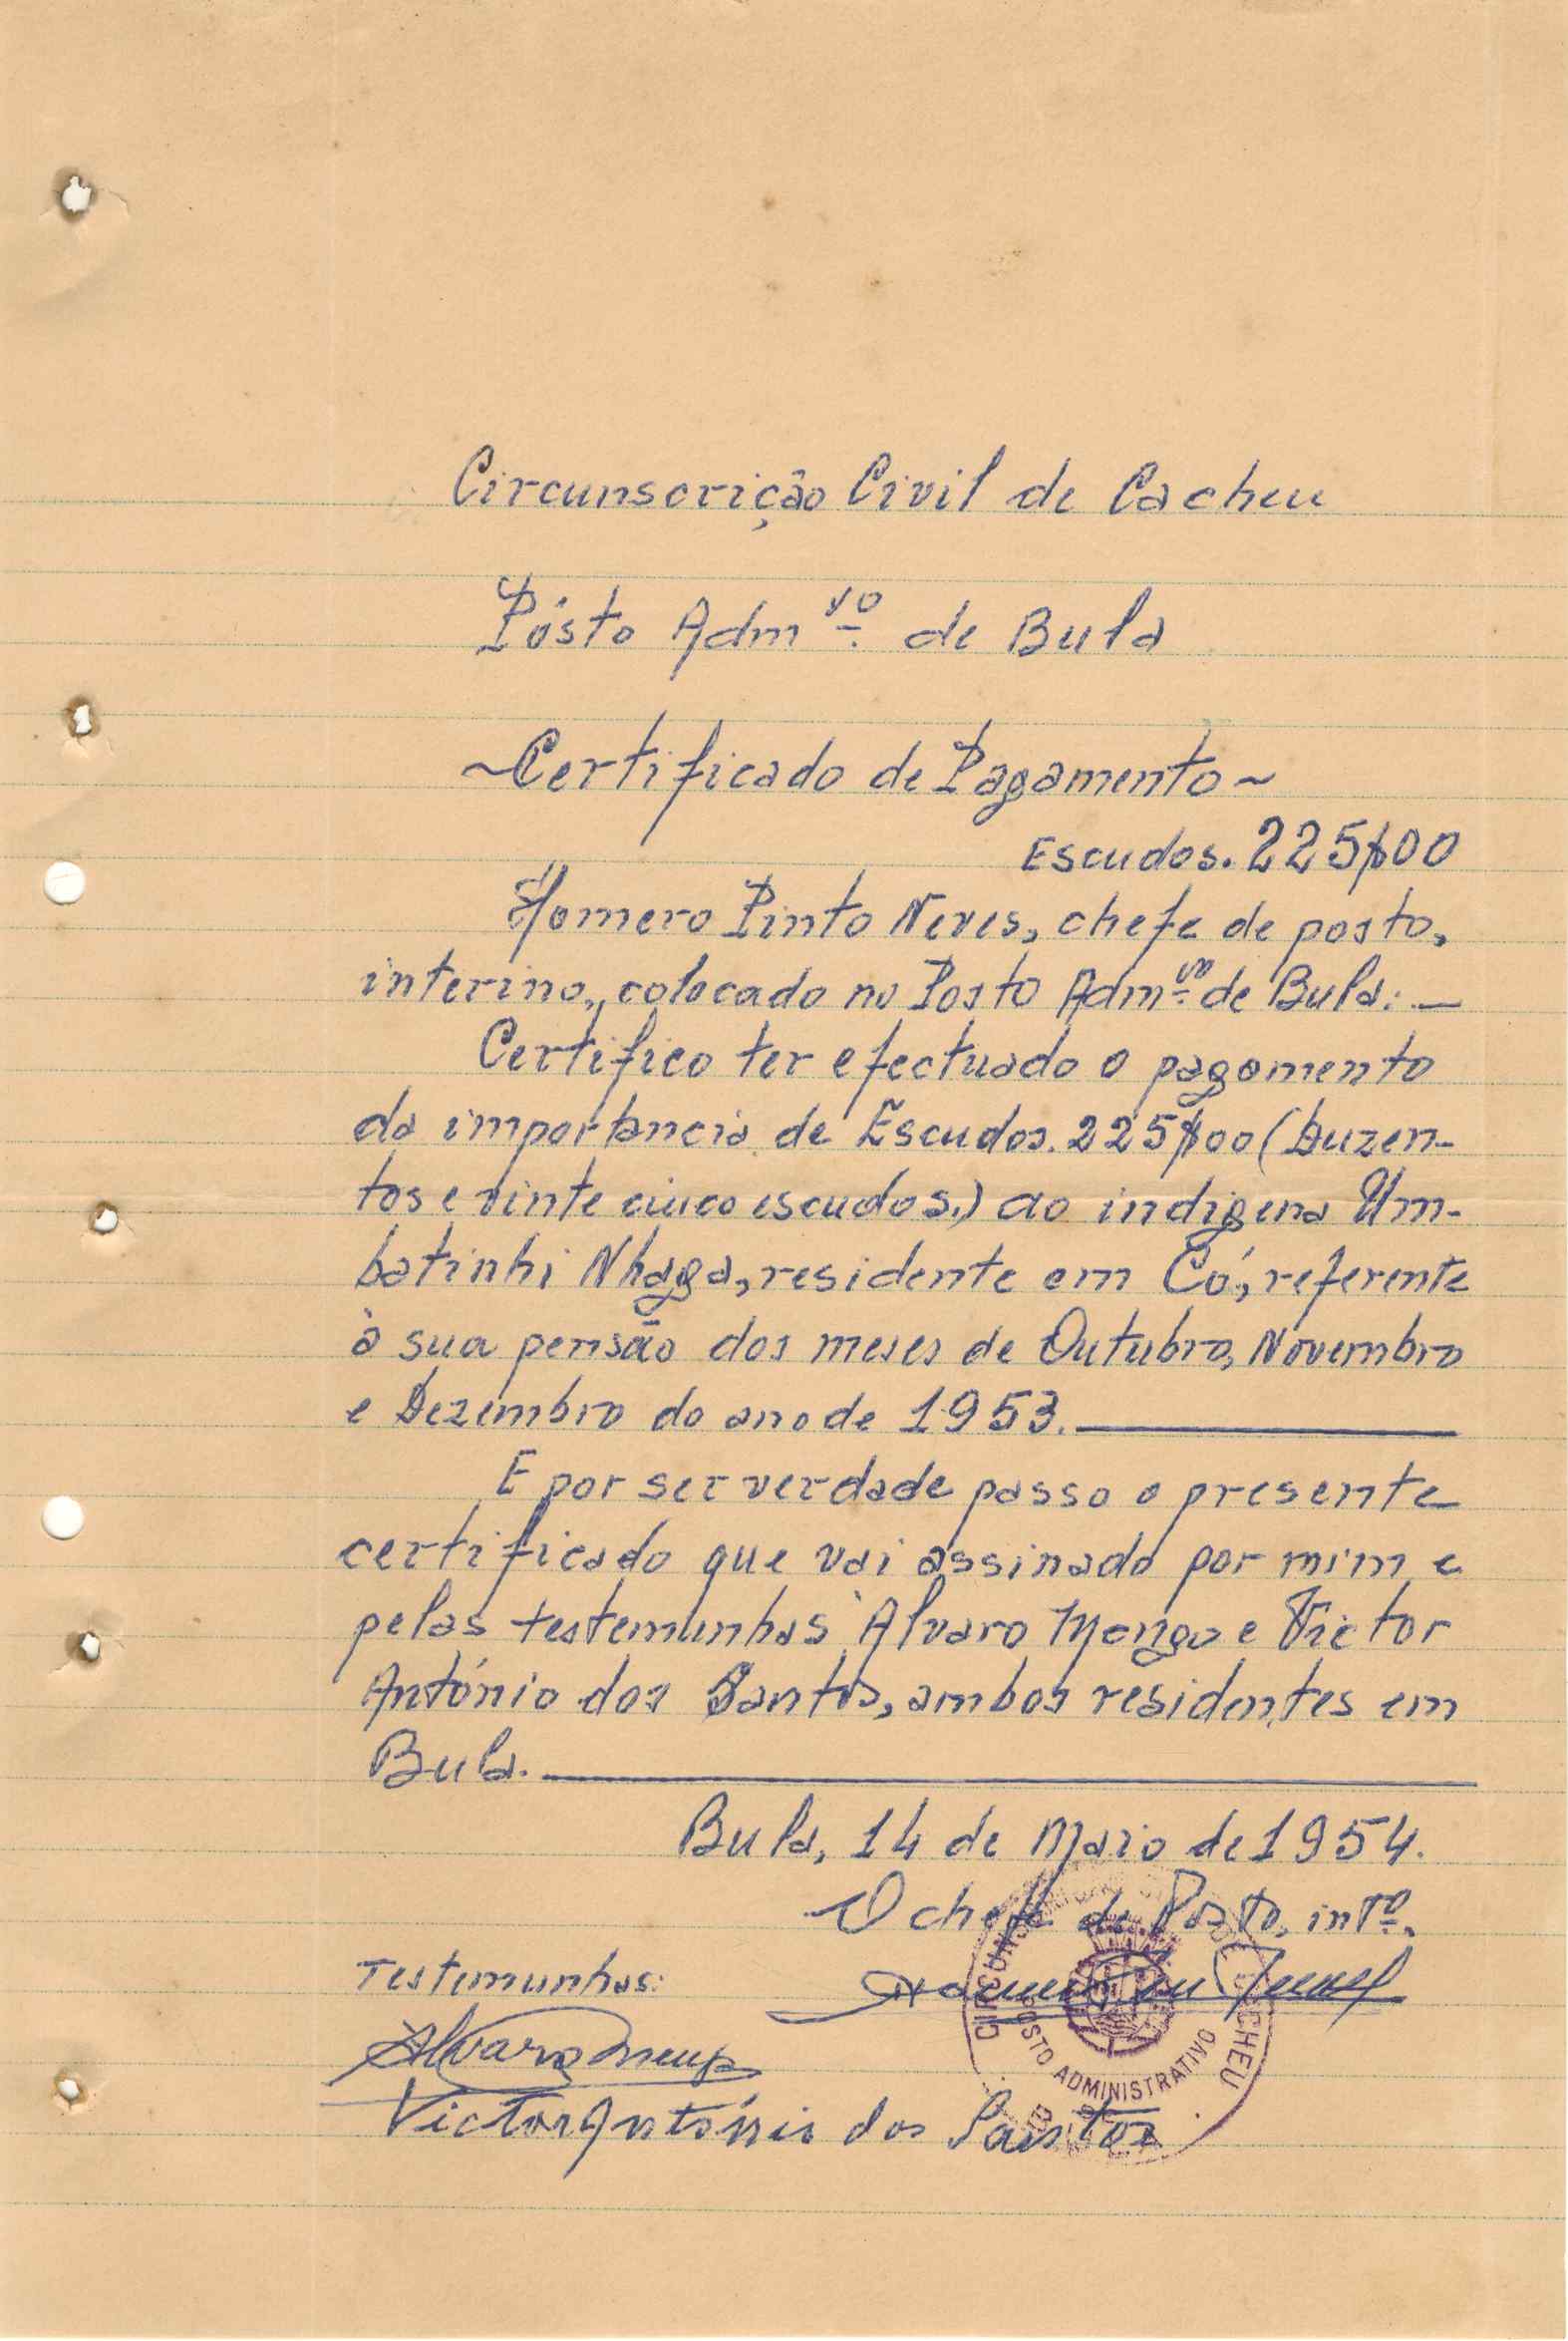 Circunscrição Civil de Cacheu
Pósto Admvo. de Bula
~Certificado de Pagamento~
Escudos. 225$00
Homero Pinto Neves, chefe de posto,
interino, colocado no Posto Admvo. de Bula: —
Certifico ter efectuado o pagamento
da importancia de Escudos. 225$00 (Duzen-
tos e vinte cinco escudos.) ao indigena Um-
batinhi Nhaga, residente em Có, referente
à sua pensão dos meses de Outubro, Novembro
e Dezembro do ano de 1953.
E por ser verdade passo o presente
certificado que vai assinado por mim e
pelas testemunhas Alvaro e Victor
António dos Santos, ambos residentes em
Bula.
Bula, 14 de Maio de 1954.
O chefe de Posto, intº.
Testemunhas:
Alvaro
Victor António dos Santos
POSTO ADMINISTRATIVO